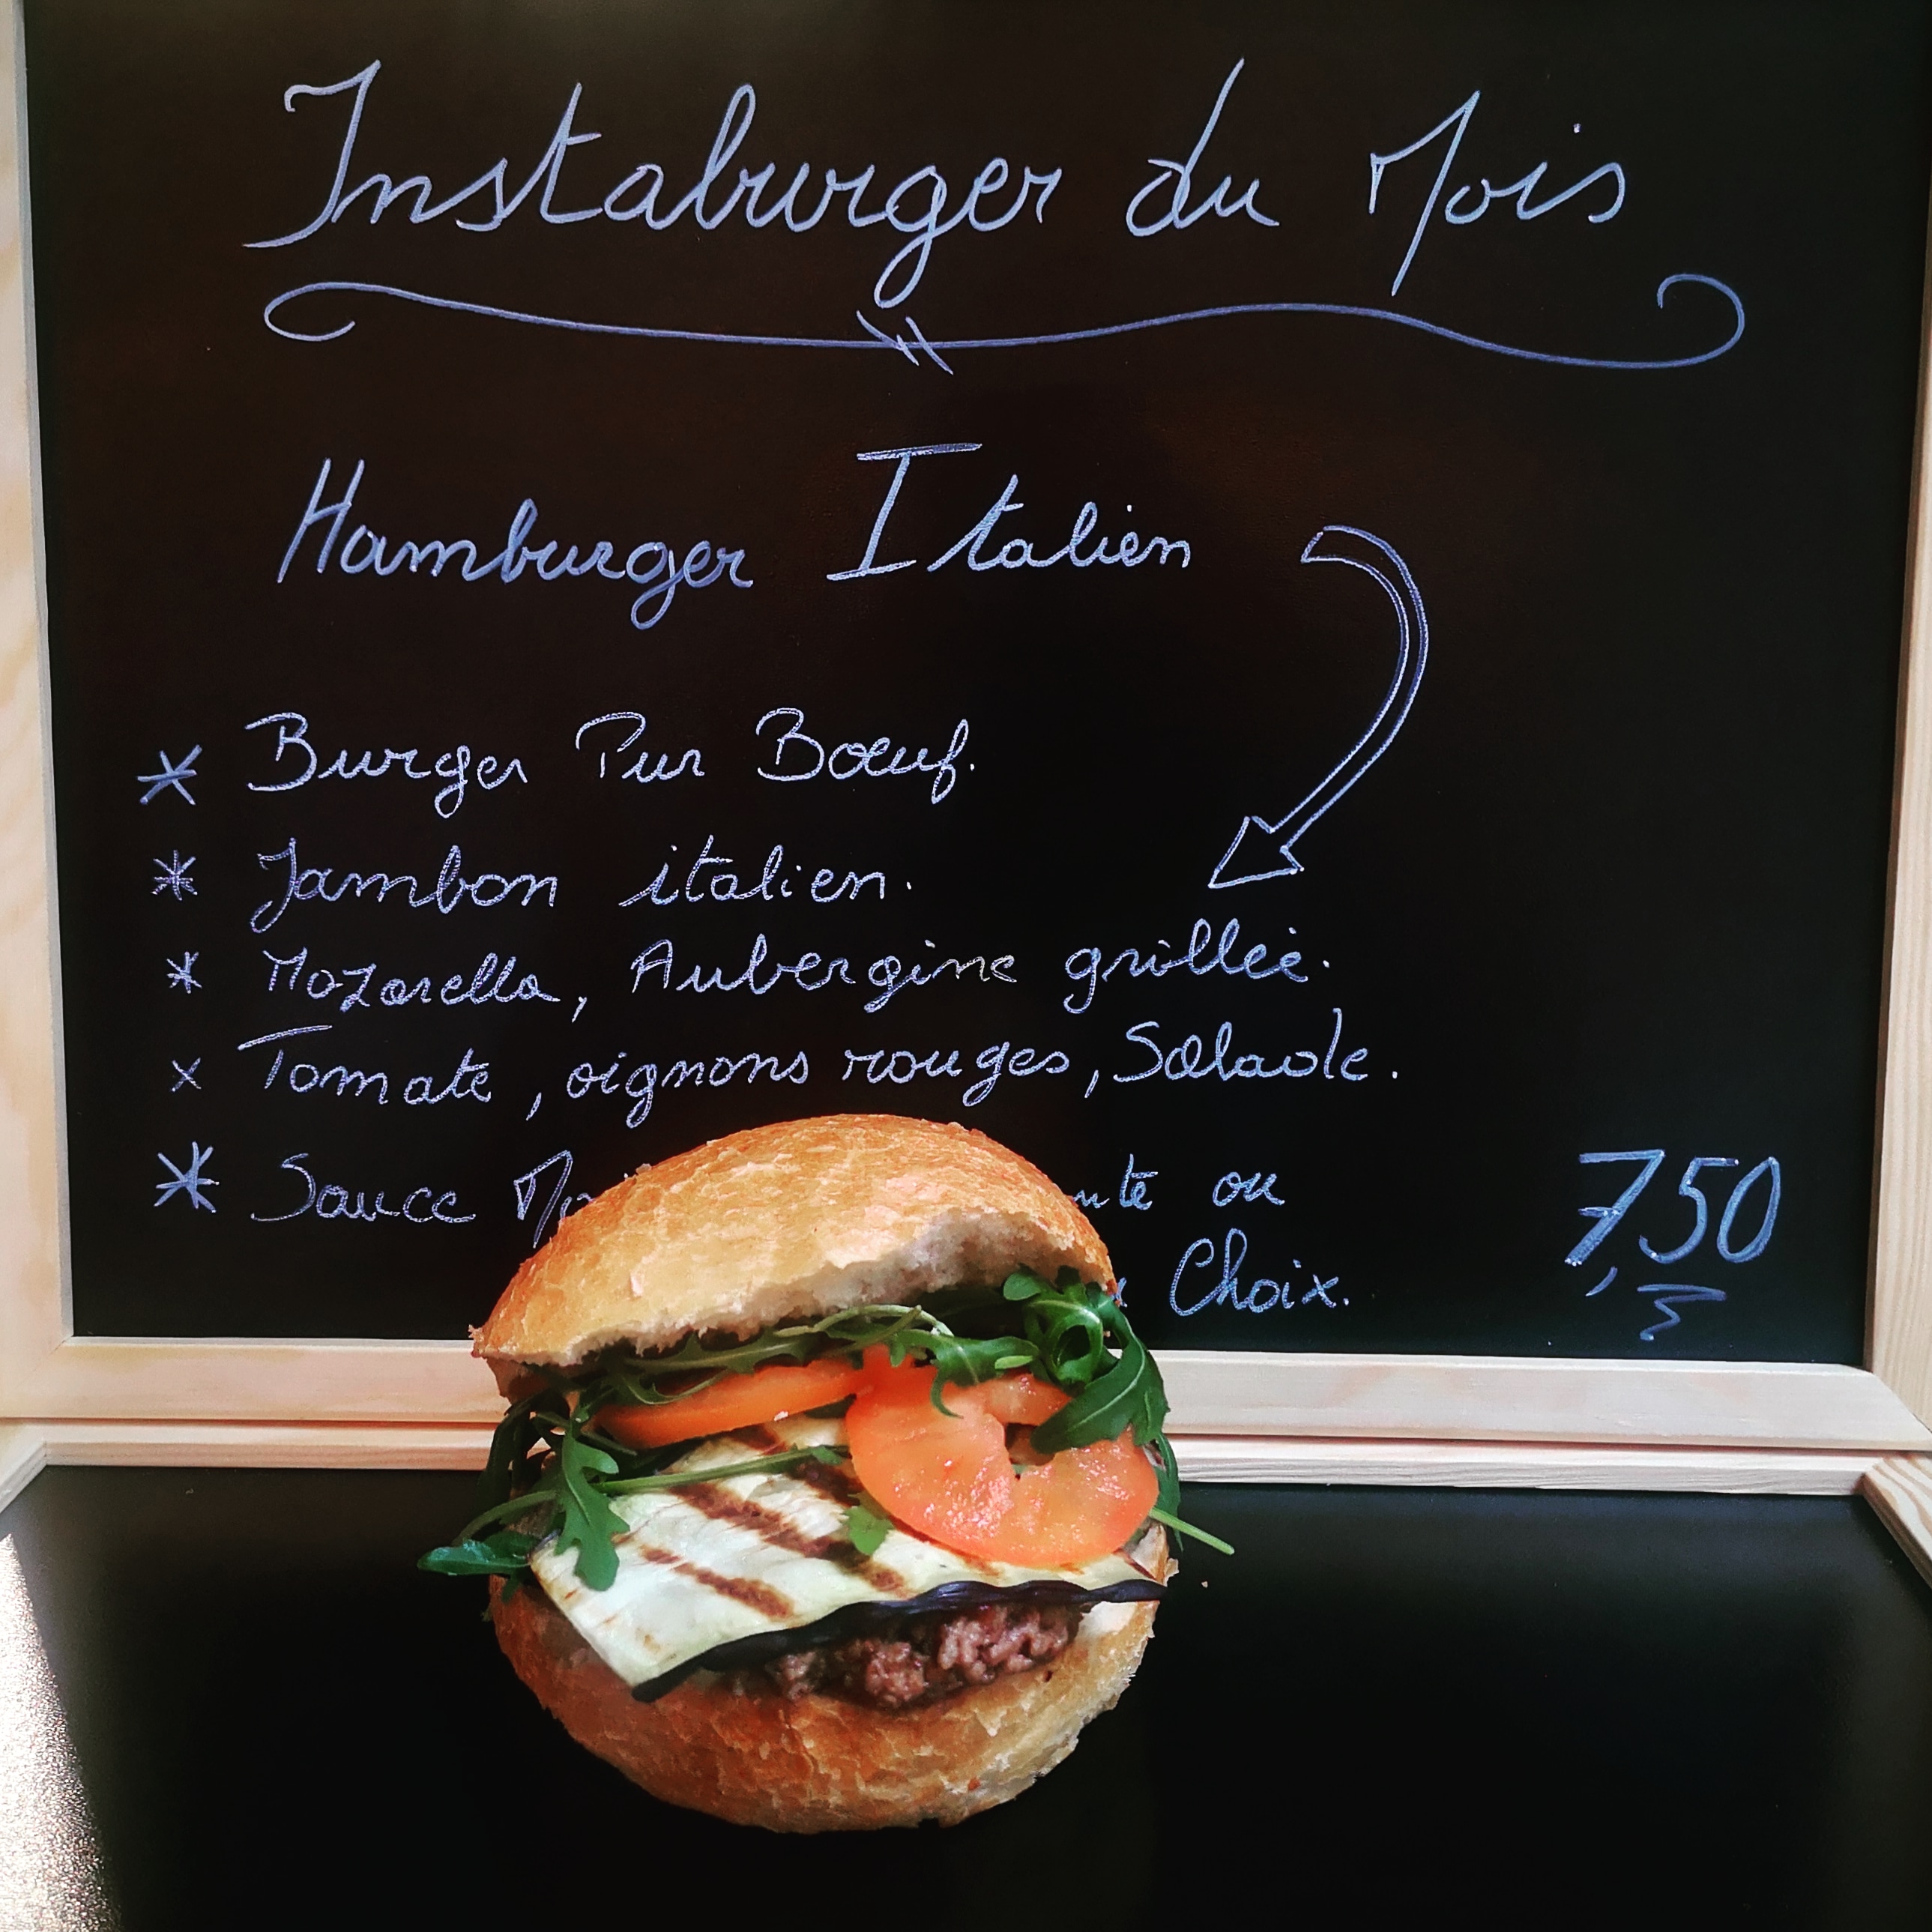 Instaburger du Mois
Hamburger Italien
* Burger Pur Bœuf.
* Jambon italien.
* Mozarella, Aubergine grillée.
× Tomate, oignons rouges, Salade.
* Sauce ou
Choix.
7,50